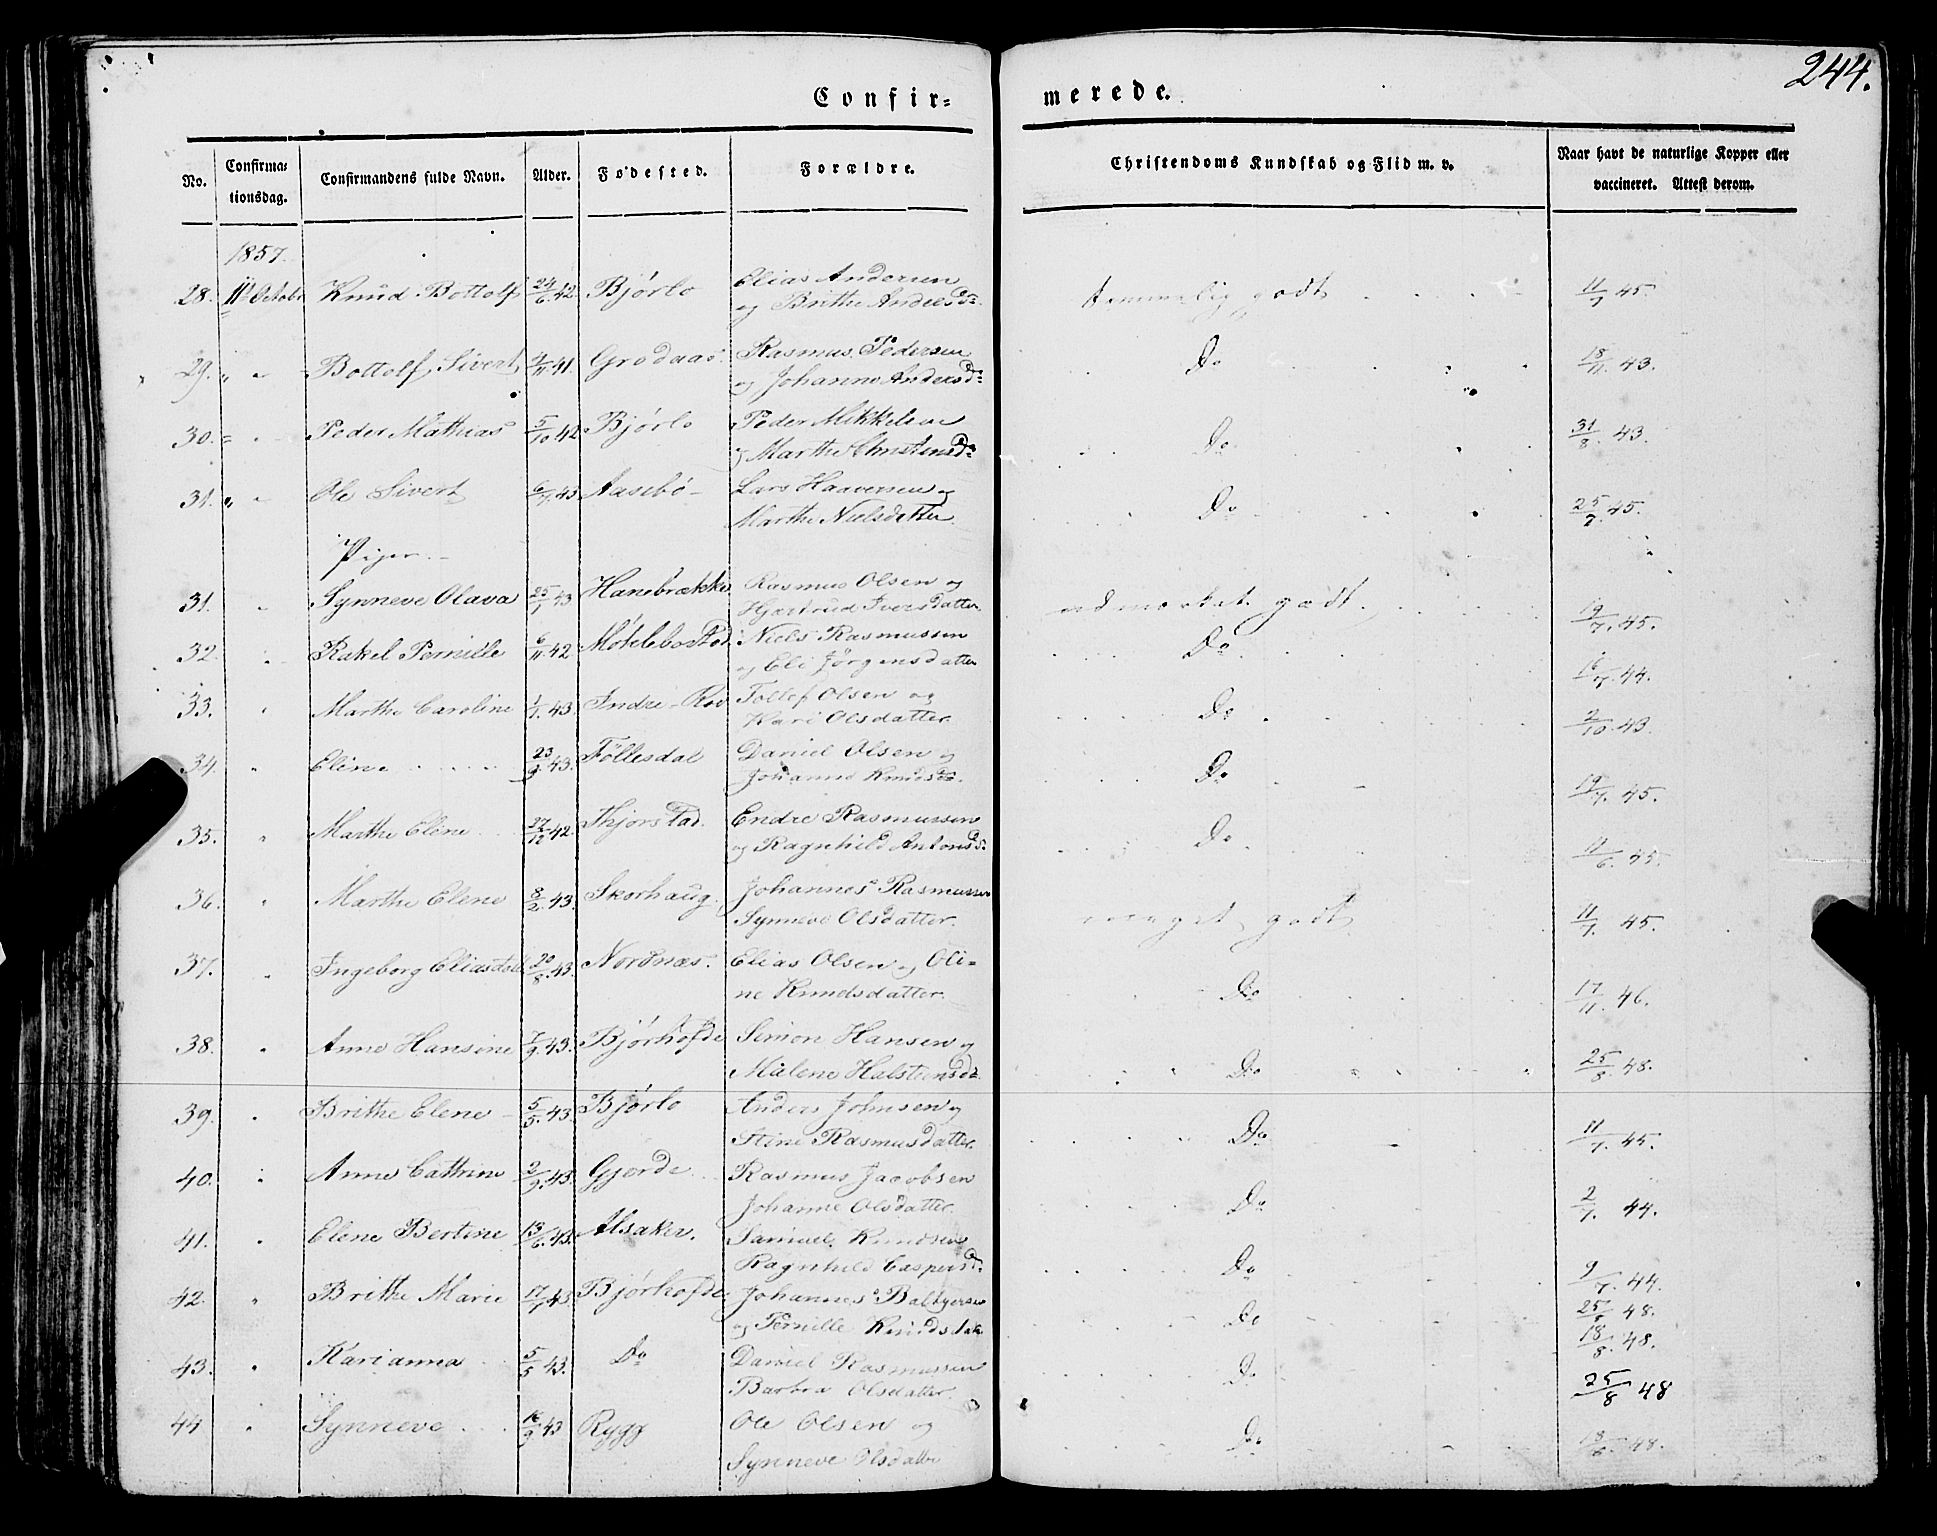 244.
Confir-
merede.
No.
Confirma-
tionsdag.
Confirmandens fulde Navn.
Alder.
Fødested.
Forældre.
Christendoms Kundskab og Flid m. v.
Naar havt de naturlige Kopper eller
vaccineret. Attest derom.
1857.
28. 11te Octobr Knud Bottolf 24/6 42 Bjørlo Elias Andersen temmelig godt 11/7 45.
og Brithe Andersd:
29. " " Bottolf Sivert 4/11 41. Grodaas. Rasmus Pedersen Do 18/11. 43.
og Johanne Andersd:
30. " " Peder Mathias 5/10 42 Bjørlo Peder Mikkelsen Do 31/8. 43.
og Marthe Christensd:
31. " " Ole Sivert 6/7. 43 Aasebø Lars Haaversen og Do 25/7. 45.
Marthe Nielsdatter.
Piger.
31. " Synneve Olava 25/1 43 Hanebrække Rasmus Olsen og udmærket godt. 19/7. 45.
Hjertrud Iversdatter
32. " Rakel Pernille 6/11 42 Møklebostad. Niels Rasmussen Do 16/7. 44.
og Eli Jørgensdatter
33. " Marthe Caroline 1/1. 43 Indre-Roo Tollef Olsen og Do 2/10. 43.
Kari Olsdatter.
34. " Eline 23/9. 43. Føllesdal Daniel Olsen og Do 19/7. 45.
Johanne Knudsd:
35. " Marthe Eline 27/12 42. Thjorstad. Endre Rasmussen Do 11/6. 45.
og Ragnhild Antonsd:
36. " Marthe Elene 8/2. 43. Skorhaug. Johannes Rasmussen meget godt. 11/7. 45.
Synneve Olsdatter.
37. " Ingeborg Eliasdatt 20/8. 43. Nordnæs. Elias Olsen og Oli- Do 17/11. 46.
ne Knudsdatter.
38. " Anne Hansine 7/9. 43. Bjørhofde Simon Hansen og Do 25/8. 48.
Malene Halsteensd:
39. " Brithe Elene 5/5. 43. Bjørlo Anders Johnsen og Do 11/7. 45.
Stine Rasmusdatter.
40. " Anne Cathrine 2/9. 43. Gjerde Rasmus Jacobsen Do 2/7. 44.
Johanne Olsdatter.
41. " Elene Bertine 13/6. 43. Alsaker. Samuel Knudsen Do 9/7. 44.
Ragnhild Caspersd:
42. " Brithe Marie 17/7 43. Bjørhofde Johannes Baltzersen Do 25/8 48.
og Pernille Knudsdatt 18/8. 48.
43. " Karianna 5/5 43. Do Daniel Rasmussen Do 25/8 48
Barbra Olsdatter.
44 " Synneve 16/9 43 Rygg Ole Olsen og Do 18/8. 48.
Synneve Olsdatter